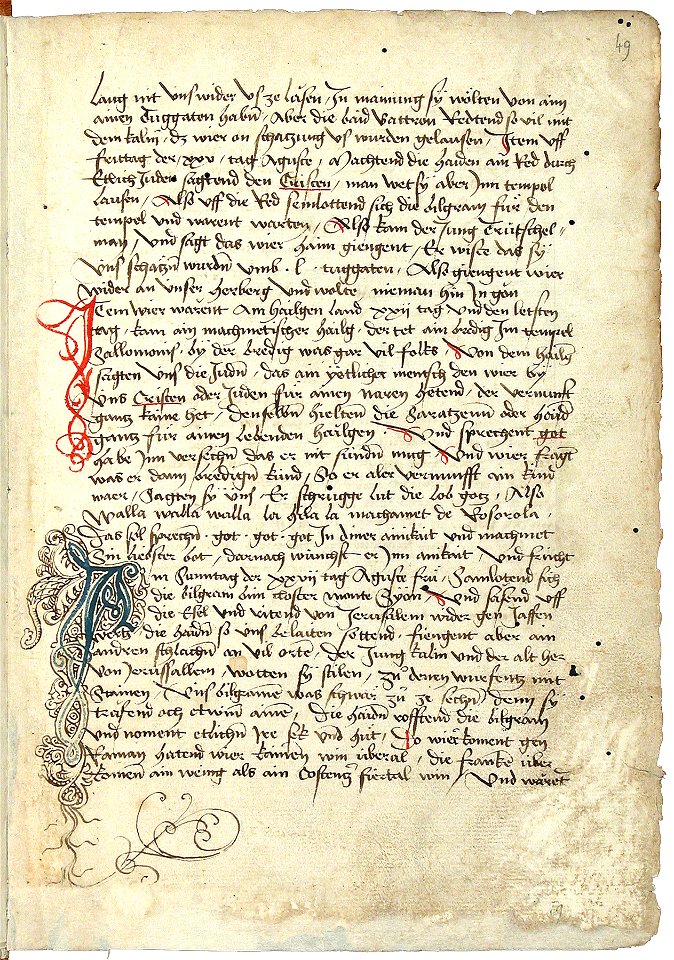 49
lang nit vns wider vs ze lasen / In mainung sy wölten von aim
ainen Tuggaten habn̄ / Aber die baid pattron Redtend so vil mit
dem kalin / dz wier on schatzung vs wurden gelausen / Item vff
frittag der / xxv / tag Auguste / Machtend die haiden ain Red durch
Ettlich Juden sagtend den Cristen / man wet sy aber Inn tempel
lausen / Alß vff die Red semlottend sich die bilgram für den
tempel vnd warent warten / Also kam der Jung trütschel=
man / vnd sagt das wier haim giengent / Er wiste das sy
vns schatzn̄ wurdn̄ vmb · l · tuggaten / Also giengent wier
wider an vnser herberg vnd wolte nieman hin In gon
Item wier warent Am hailgen land xxxii tag vnd den letsten
tag / kam ain machmetischer hailg / der tet ain bredig Im tempel
Sallomonis / by der bredig was gar vil folks / Von dem hailgn̄
sagten vns die Judn̄ / das ain yetlicher mensch den wier by
vns Cristen oder Juden für ainen naren hetend / der vernunft
gantz kaine het / denselbn̄ hielten die Saratzenn oder haid
gantz für ainen lebenden hailgen / Vnd sprechent got
habe Inn versechn̄ das er nit sündn̄ mug / Vnd wier fragt
was er dann bredign̄ kind / So er aler vernunfft ain kind
waer / Sagten sy vns / Er schrügge lut die lob gotz / Also
Walla walla walla la hila la machamet de Rosorola /
das sol sprechn̄ · got · got · got In diner ainikait vnd machmet
din liebster bot / darnach wünscht er Inn ainikait / vnd frücht
Am Sunntag der xxvii tag Auguste frü / Samlotend sich
die bilgram bim closter monte Syon / vnd sasend vff
die Esel vnd ritend von Jerusalem wider gen Jaffen
wertz / die haidn̄ so vns belaiten söttend / fiengent aber ain
andren schlachn̄ an vil orte / der Jung kalin vnd der alt her
von Jerussallem / wotten sy stilen / zů denen wurfentz mit
Stainen / vns bilgraine was schwär zů ze sechn̄ / denn sy
trafend och etwinn ainē / die haidn̄ rofftend die bilgram
vnd noment etlichn̄ Ire sek vnd hüt / Do wier koment gen
Raman hatend wier kainen win überal / die franke über
komen ain wenig als ain Costentz fiertal win / vnd warēt